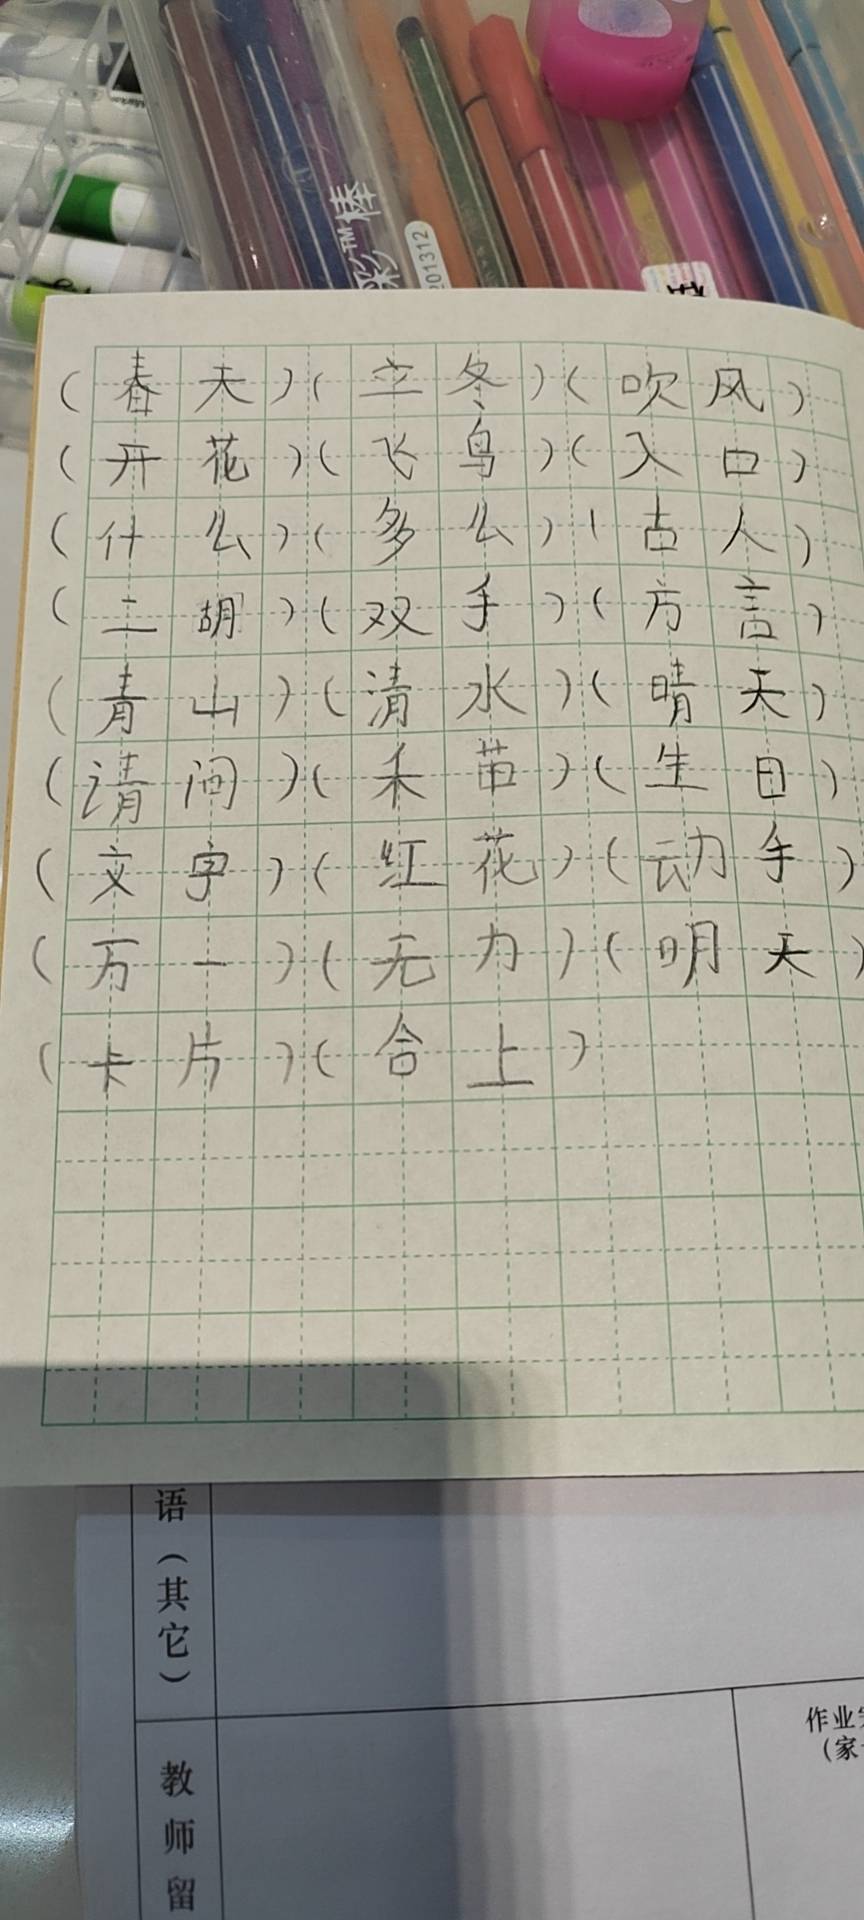 彩™棒
201312
(春天)(立冬)(吹风)
(开花)(飞鸟)(入口)
(什么)(多么)(古人)
(二胡)(双手)(方言)
(青山)(清水)(晴天)
(请问)(禾苗)(生日)
(文字)(红花)(动手)
(万一)(无力)(明天)
(卡片)(合上)
语(其它)
教师留
作业
(家